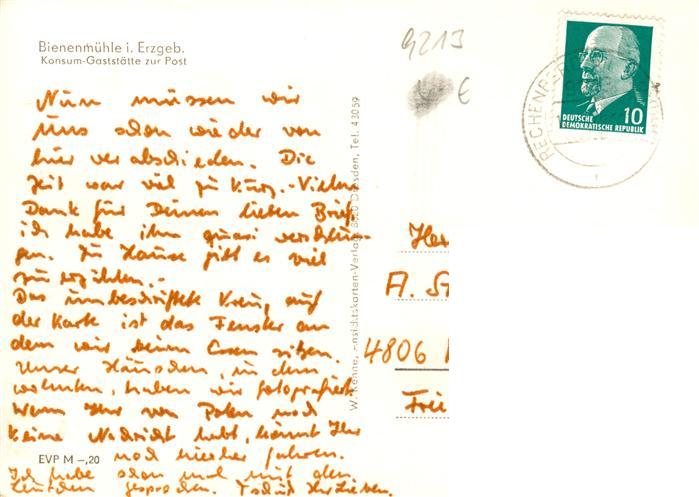 Bienenmühle i. Erzgeb.
Konsum-Gaststätte zur Post
9213
€
RECHENBERG
10
DEUTSCHE
DEMOKRATISCHE REPUBLIK
Nun müssen wir
uns schon wieder von
hier verabschieden. Die
Zeit war viel zu kurz. - Vielen
Dank für Deinen lieben Brief,
ich habe ihn quasi verschlun-
gen. Zu Hause gibt es viel
zu erzählen. -
Das unbeschriftete Kreuz auf
der Karte ist das Fenster an
dem wir beim Essen sitzen.
Unser Häuschen, in dem
wohnten, haben wir fotografiert.
Wenn Ihr von Polen noch
keine Nachricht habt, könnt Ihr
noch hierher fahren.
Ich habe schon mal mit den
Leuten gesprochen. Tschüß Ihr Lieben.
EVP M -,20
W. Kenne, Ansichtskarten-Verlag, 8020 Dresden, Tel. 43059
A. St
4806
Frei